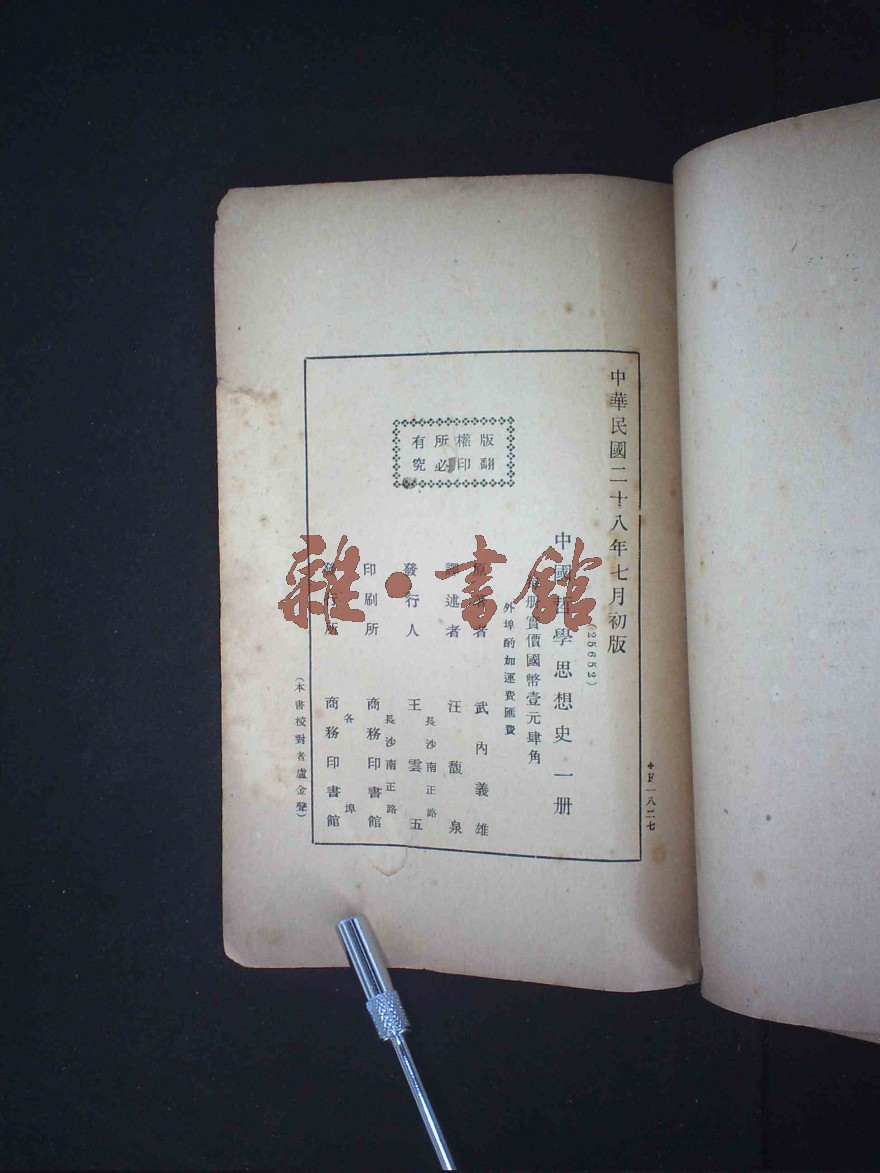 中華民國二十八年七月初版
◆F一八二七
(25652)
中國哲學思想史一册
每册實價國幣壹元肆角
外埠酌加運費匯費
版權所有
翻印必究
原著者 武內義雄
譯述者 汪馥泉
長沙南正路
發行人 王雲五
長沙南正路
印刷所 商務印書館
各埠
發行所 商務印書館
(本書校對者盧金聲)
雜·書館